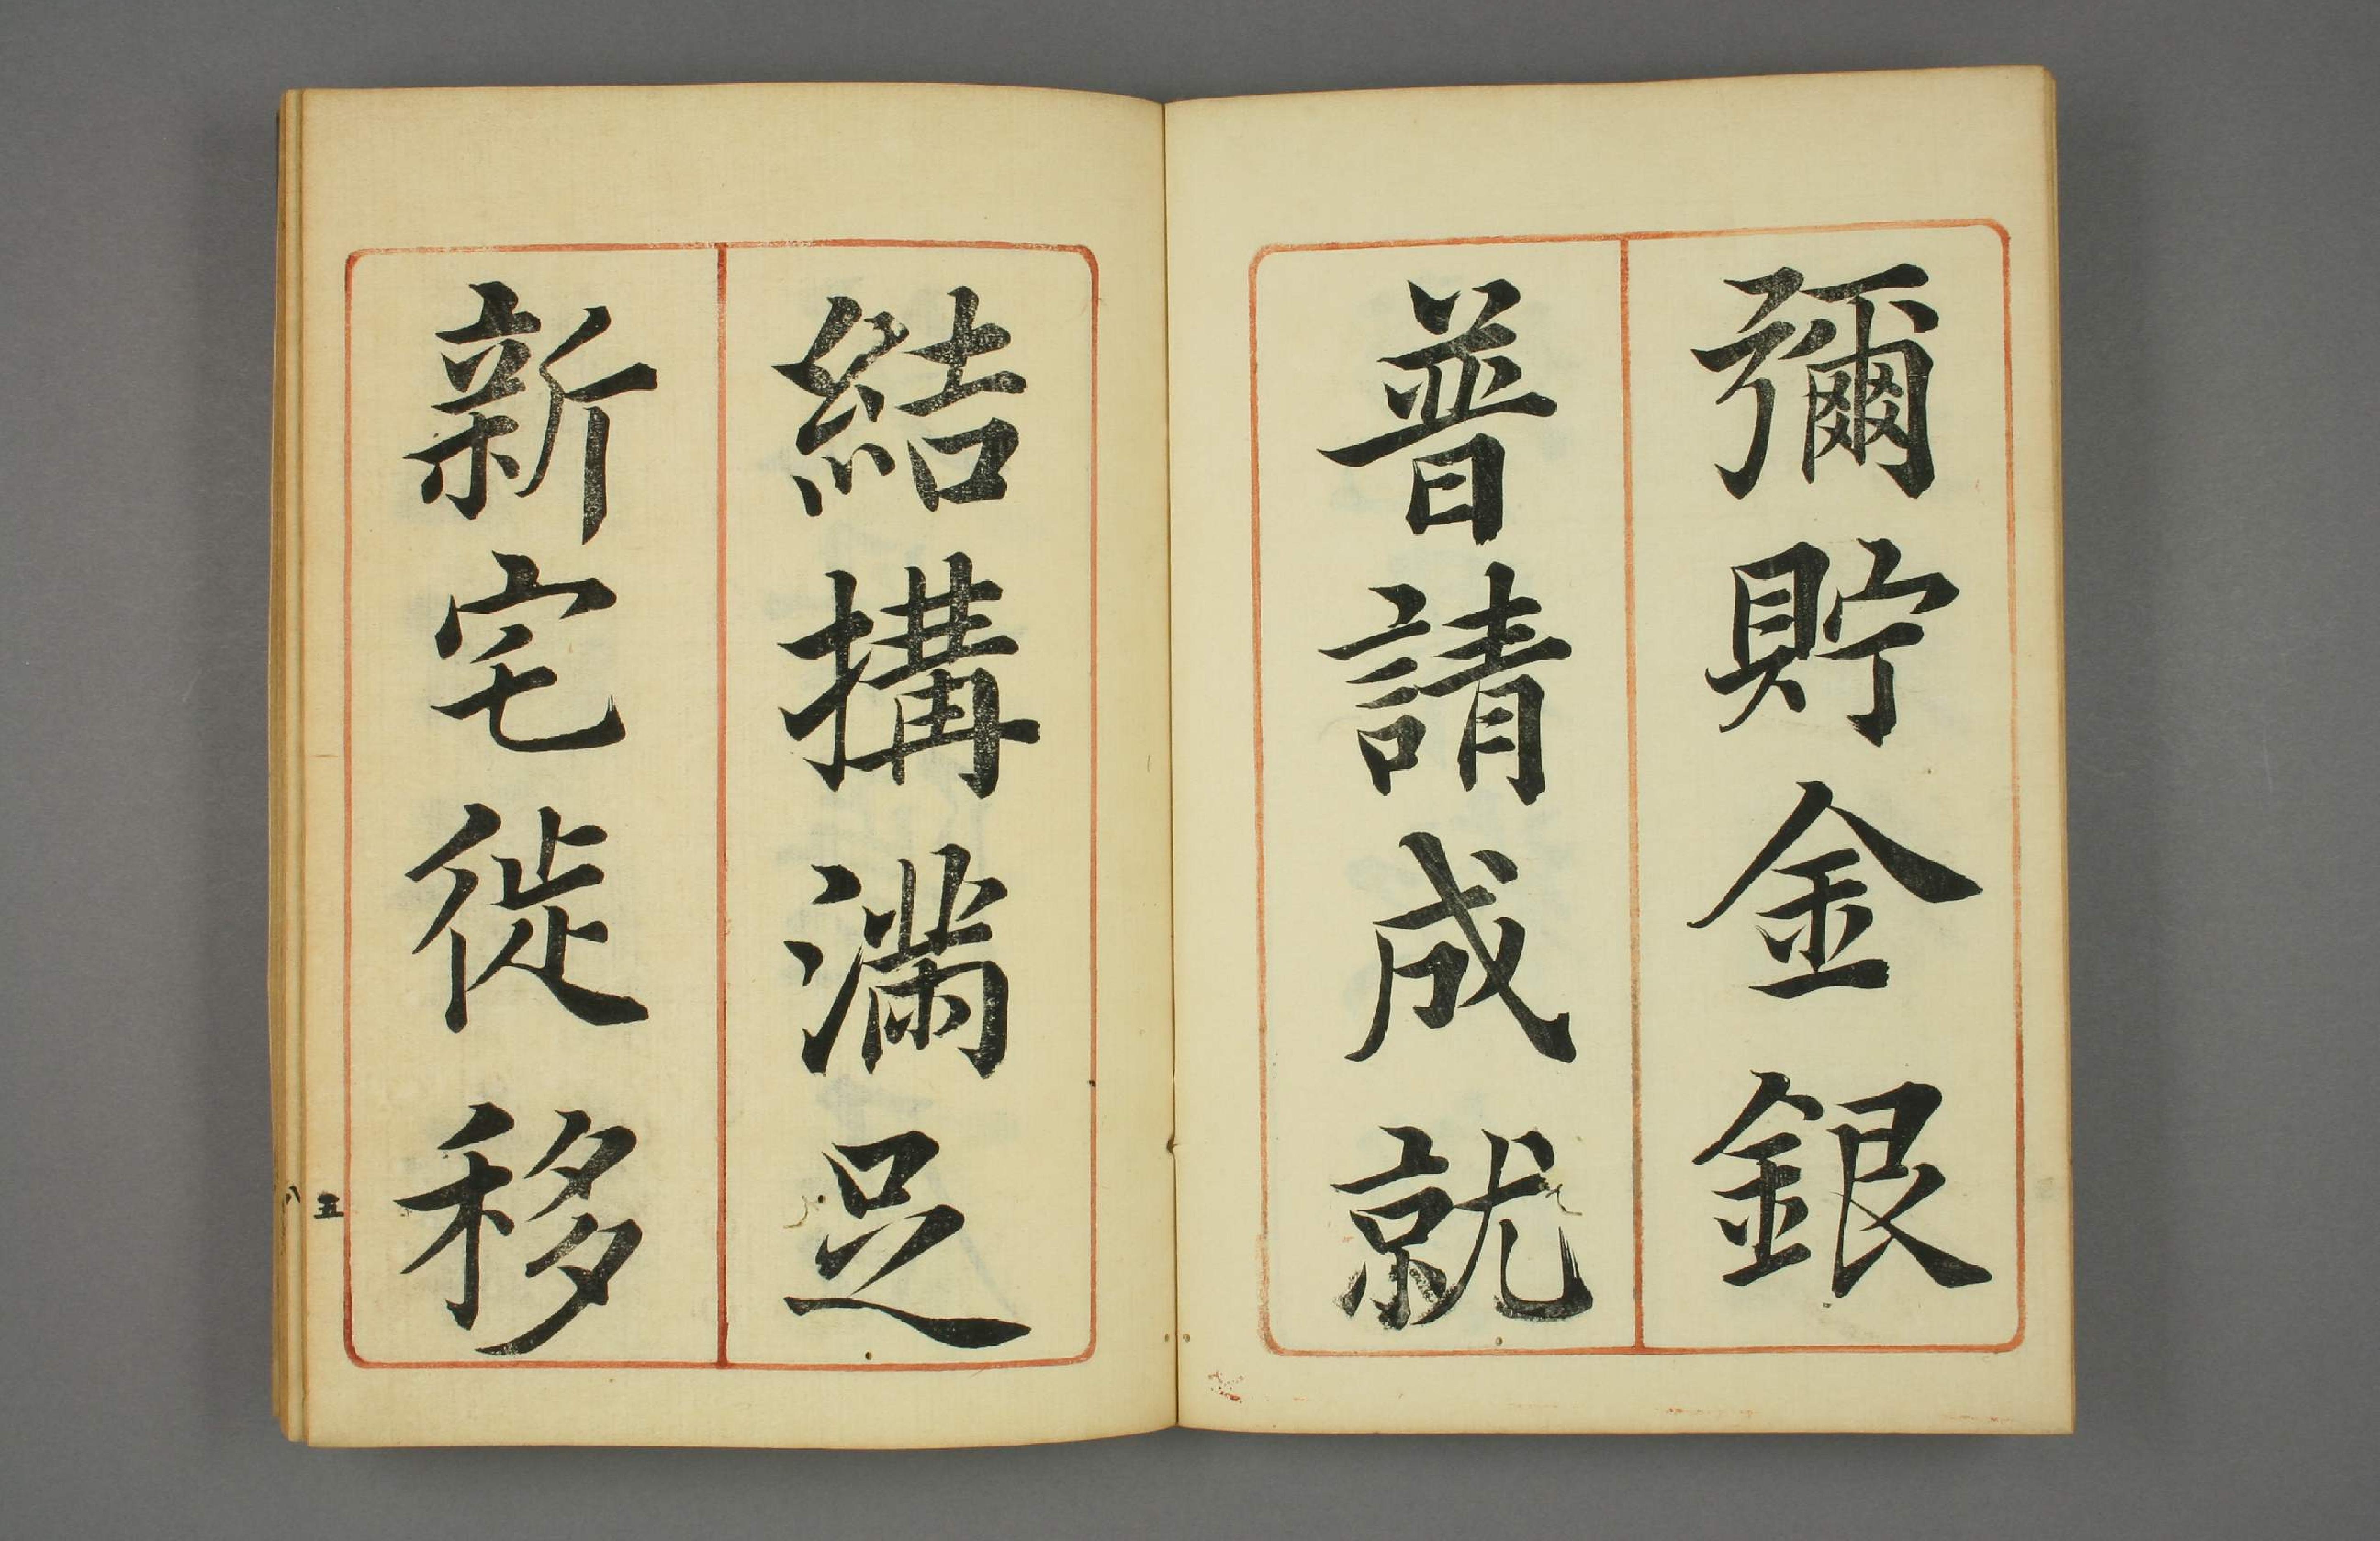 彌貯金銀
普請成就
結搆滿足
新宅徙移
五
八